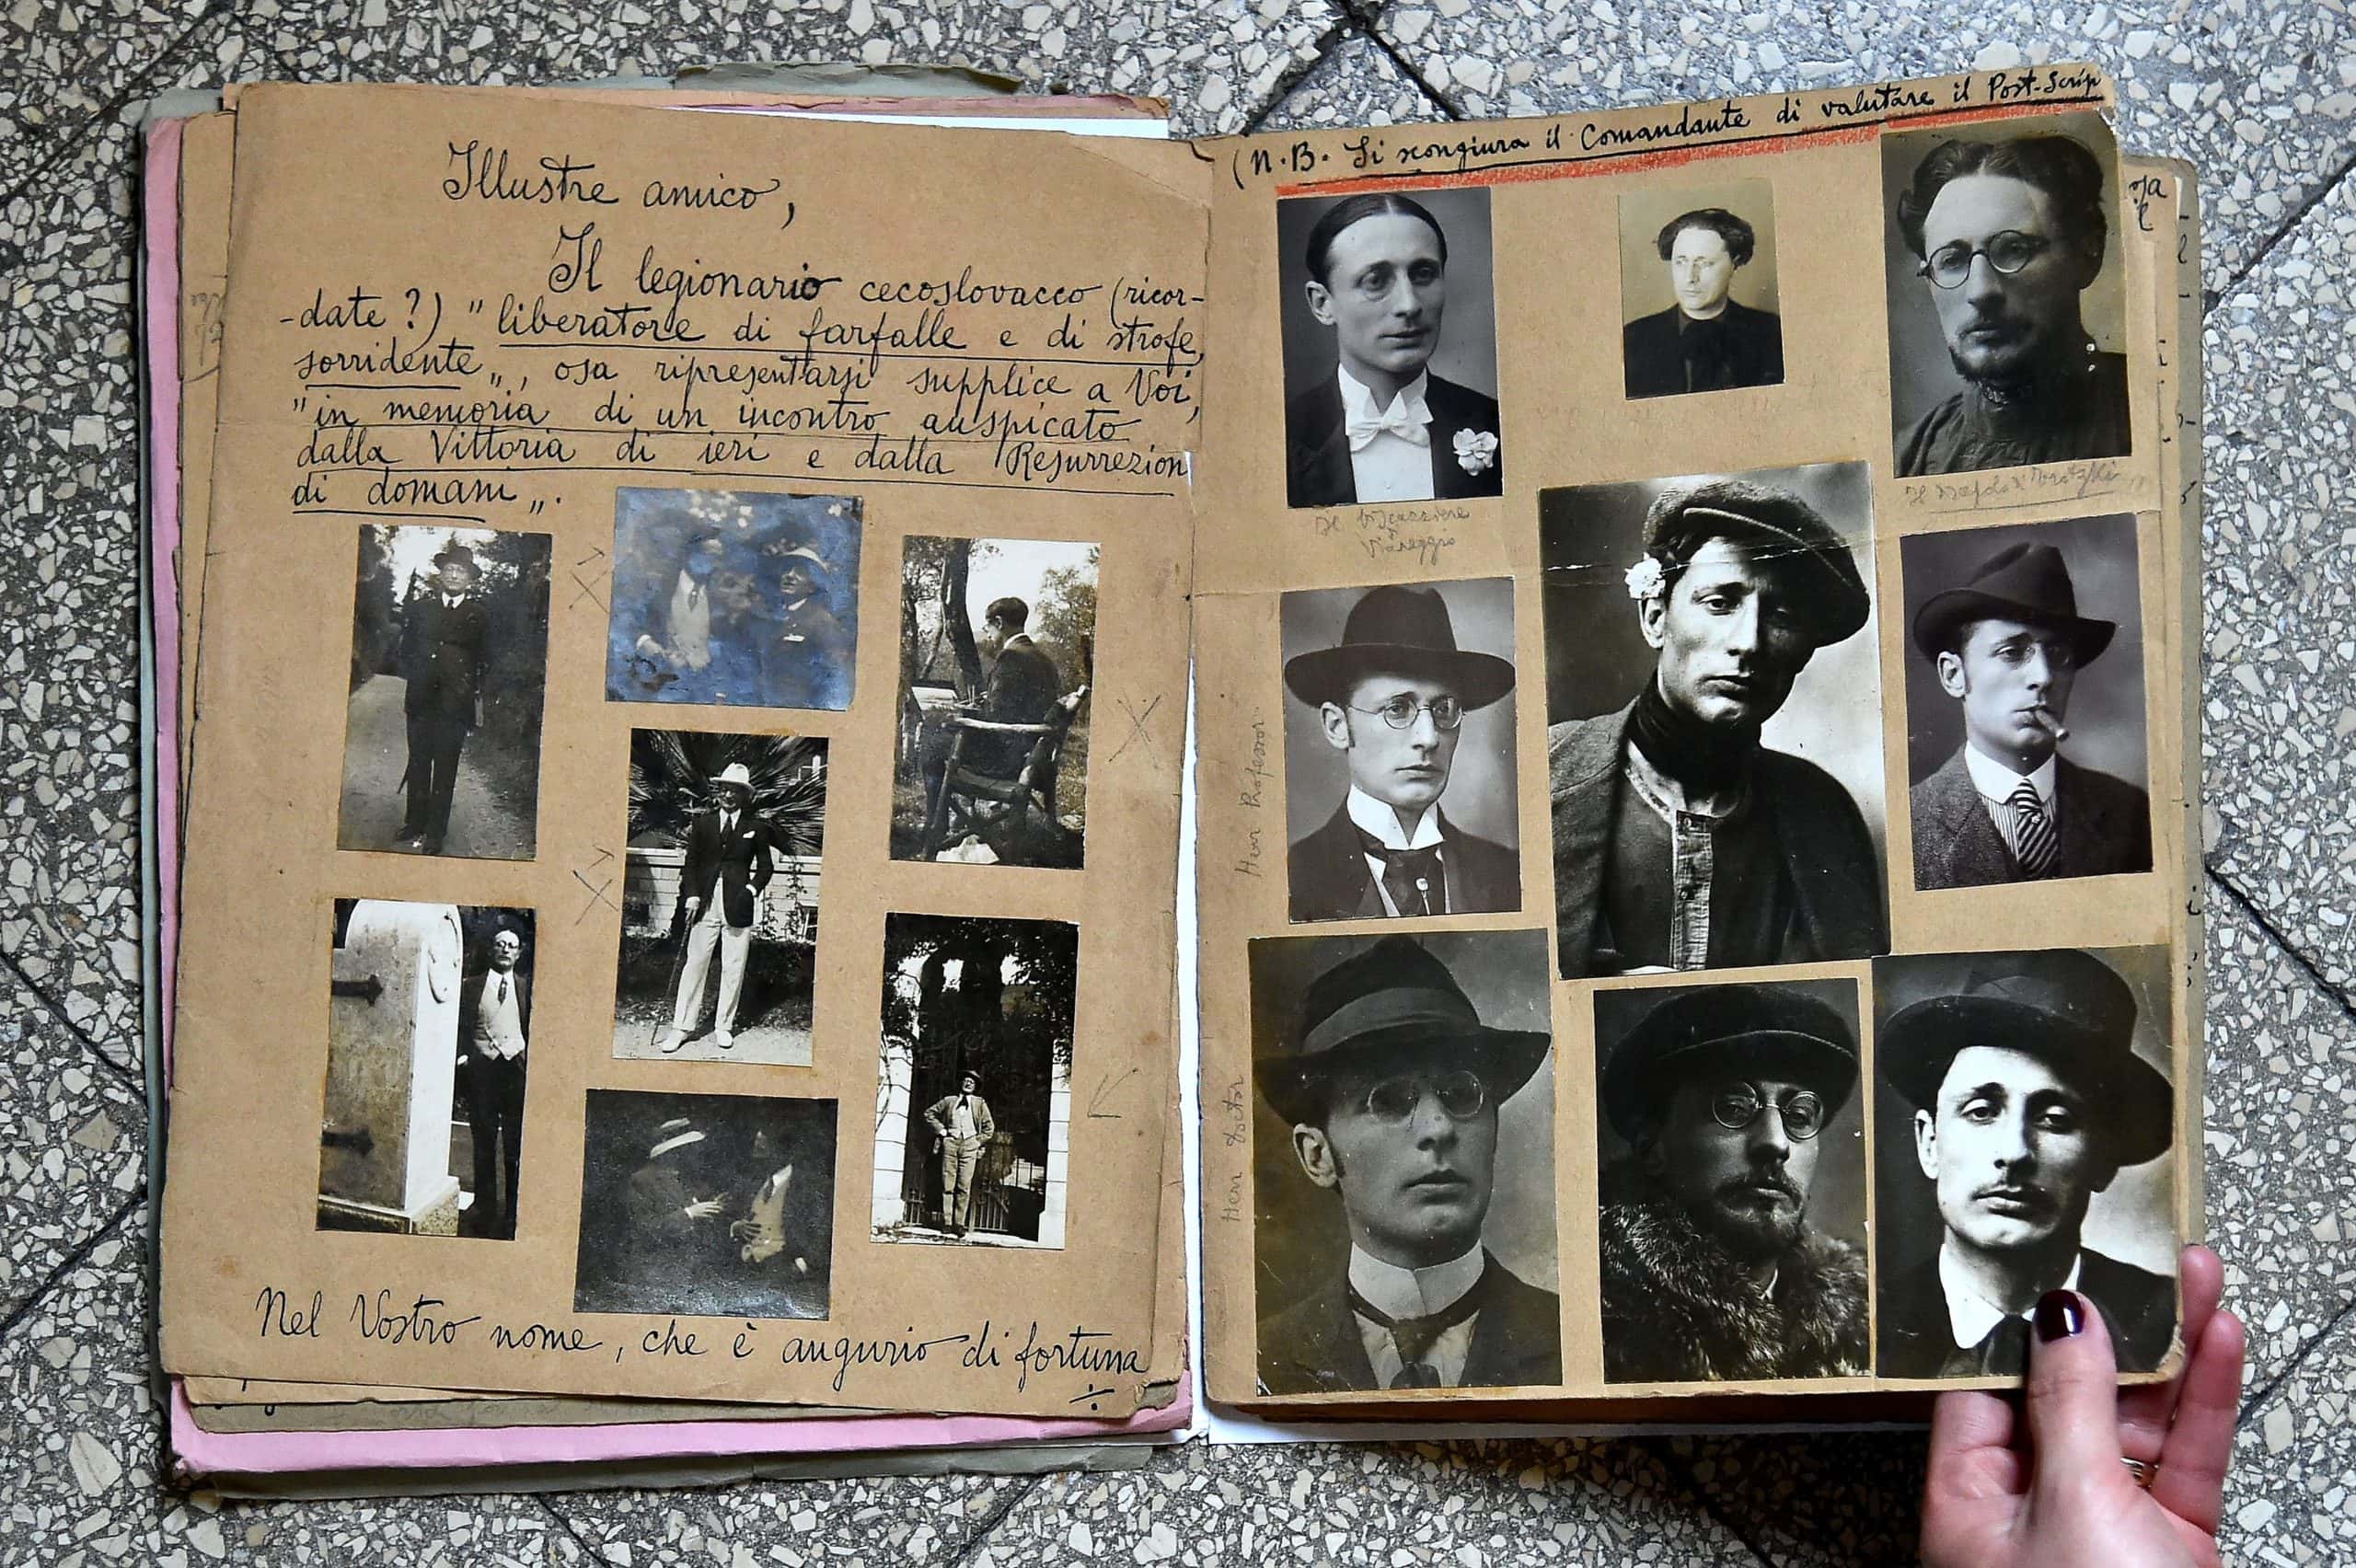 Illustre amico,
Il legionario cecoslovacco (ricor-
-date ?) "liberatore di farfalle e di strofe,
sorridente„, osa ripresentarsi supplice a Voi,
"in memoria di un incontro auspicato
dalla Vittoria di ieri e dalla Resurrezion
di domani„.
Nel Vostro nome, che è augurio di fortuna
(N.B. Si scongiura il Comandante di valutare il Post-Scrip
Il
Viareggio
Il
Herr Professor
Herr Doctor